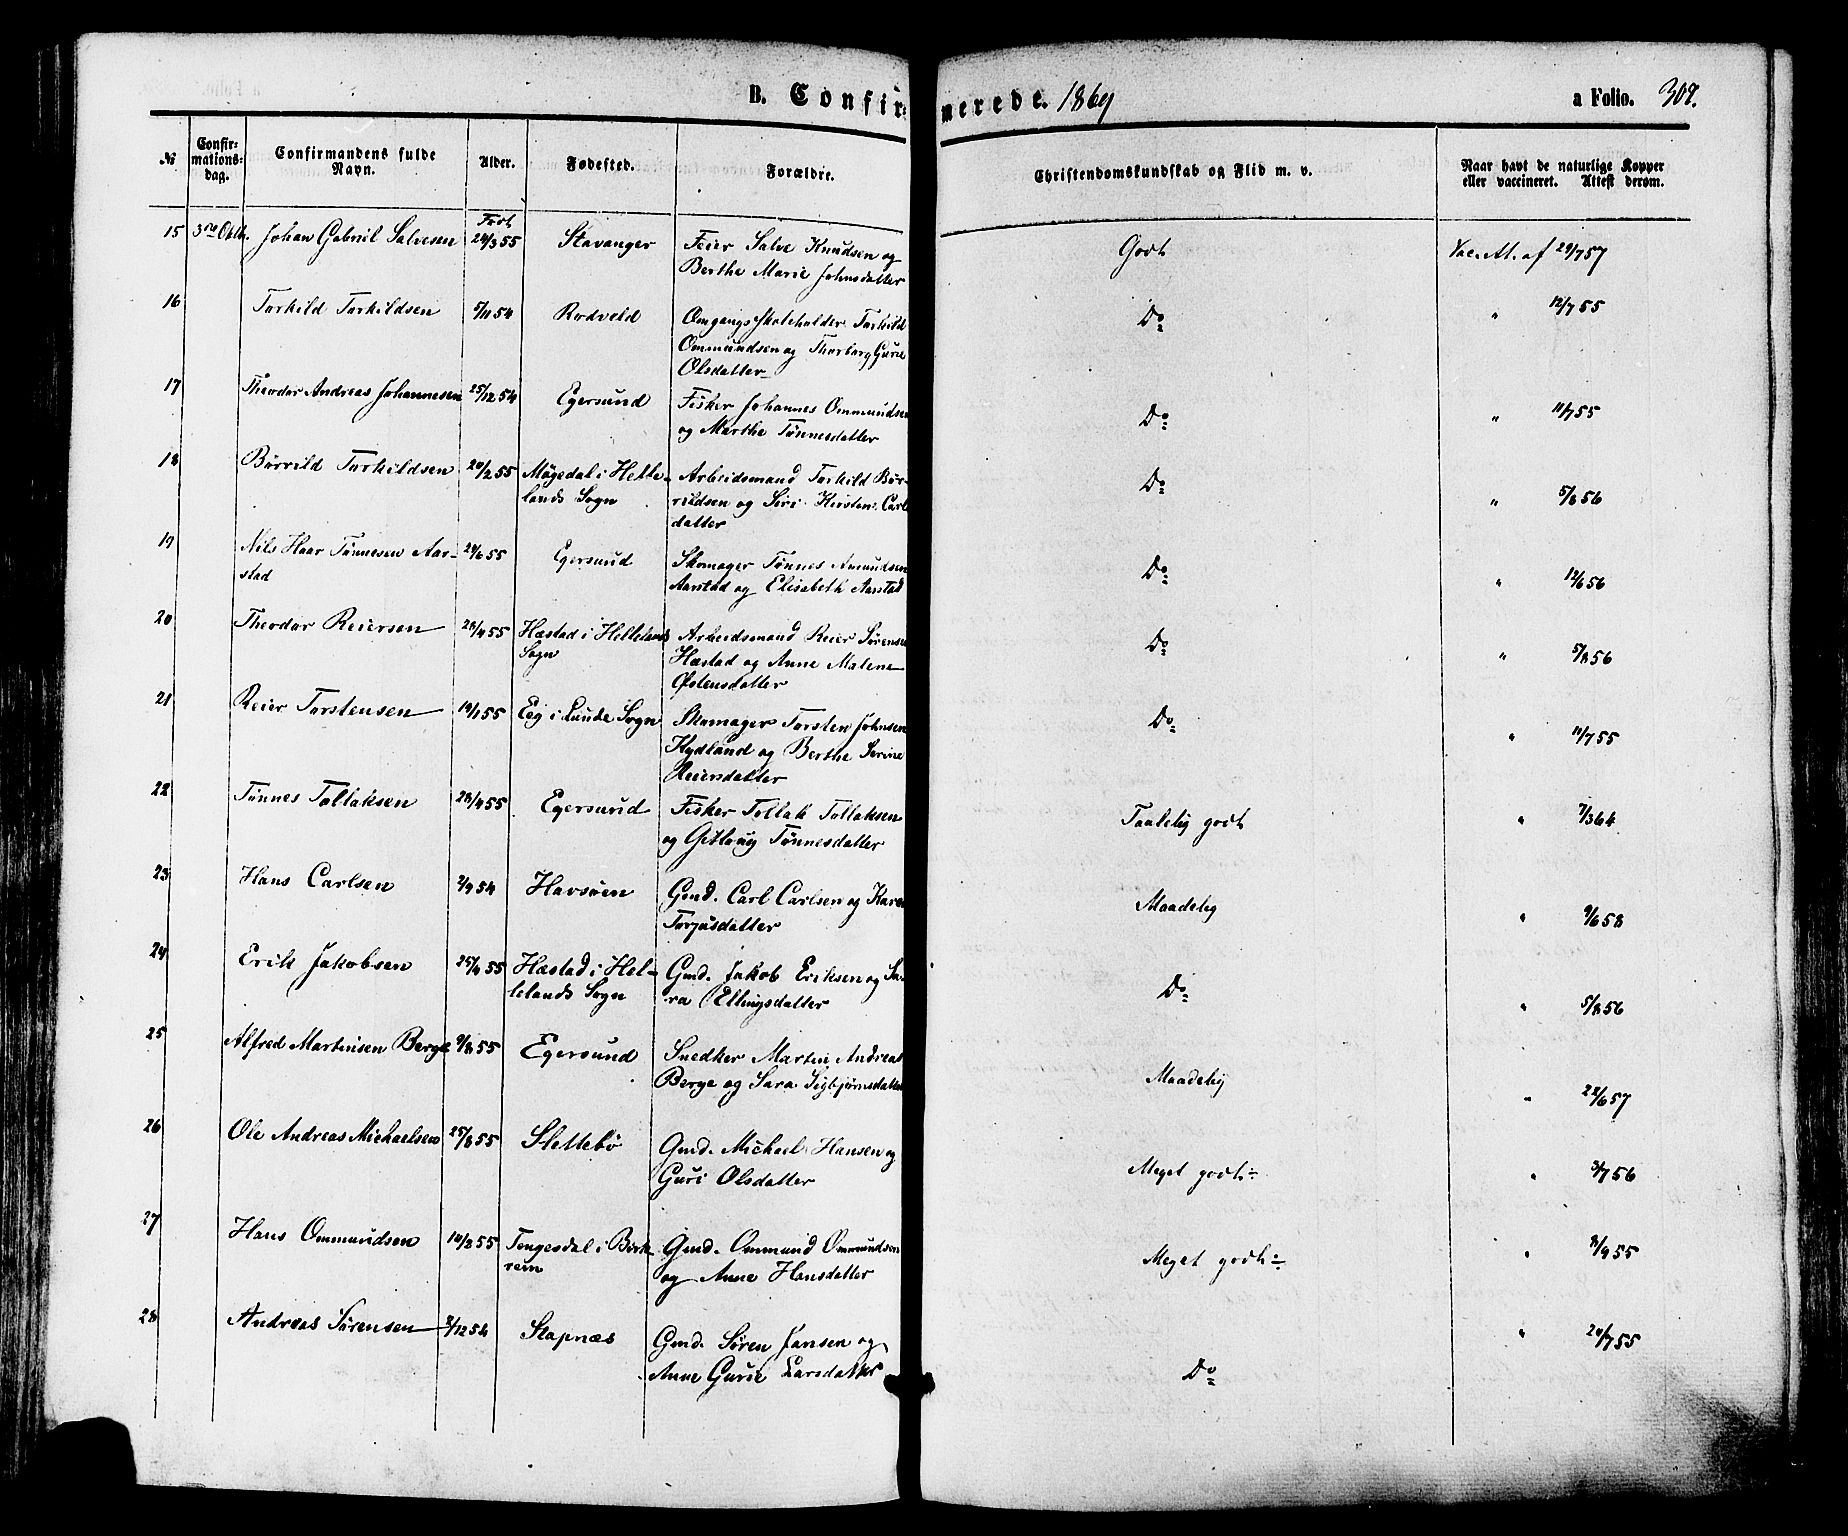 B. Confirmerede. 1869
a Folio. 309.
№
Confirmationsdag.
Confirmandens fulde Navn.
Alder.
Fødested.
Forældre.
Christendomskundskab og Flid m. v.
Naar havt de naturlige Kopper eller vaccineret. Attest derom.
15 3die Octb. Johan Gabriel Salvesen Født 24/3 55 Stavanger Feier Salve Knudsen og Godt Vac. At. af 29/7 57
Berthe Marie Johnsdatter
16 Torkild Torkildsen 5/11 54 Rodveld Omgangsskoleholder Torkild Do " 12/7 55
Ommundsen og Thorborg Gurie
Olsdatter
17 Theodor Andreas Johannesen 25/12 54 Egersund Fisker Johannes Ommundsen Do " 11/7 55
og Marthe Tønnesdatter
18 Børrild Torkildsen 20/2 55 Møgedal i Helle- Arbeidsmand Torkild Bør- Do " 5/8 56
lands Sogn rildsen og Siri Kirstine Carls
datter
19 Nils Haar Tønnesen Aar- 29/6 55 Egersund Skomager Tønnes Amundsen Do " 12/6 56
stad Aarstad og Elisabeth Aarstad
20 Theodor Reiersen 28/4 55 Hæstad i Hellelands Arbeidsmand Reier Sørensen Do " 5/8 56
Sogn Hæstad og Anne Malene
Østensdatter
21 Reier Torstensen 19/1 55 Eeg i Lunde Sogn Skomager Torsten Johnsen Do " 11/7 55
Kydland og Berthe Serine
Reiersdatter
22 Tønnes Tollaksen 28/4 55 Egersund Fisker Tollak Tollaksen Taalelig godt " 7/3 64
og Gitlaug Tønnesdatter
23 Hans Carlsen 2/9 54 Havsøen Gmd. Carl Carlsen og Karen Maadelig " 9/6 58
Torjusdatter
24 Erik Jakobsen 25/4 55 Hæstad i Hel- Gmd. Jakob Eriksen og Sa- Do " 5/8 56
lelands Sogn ra Ellingsdatter
25 Alfred Martinsen Berge 9/8 55 Egersund Snedker Martin Andreas Maadelig " 22/6 57
Berge og Sara Sigbjørnsdatter
26 Ole Andreas Michaelsen 25/8 55 Slettebø Gmd. Michael Hansen og Meget godt " 3/7 56
Guri Olsdatter
27 Hans Ommundsen 10/2 55 Tengesdal i Birk- Gmd. Ommund Ommundsen Meget godt " 8/9 55
rem og Anne Hansdatter
28 Andreas Sørensen 2/12 54 Stapnæs Gmd. Søren Jansen og Do " 20/7 55
Anne Gurie Larsdatter